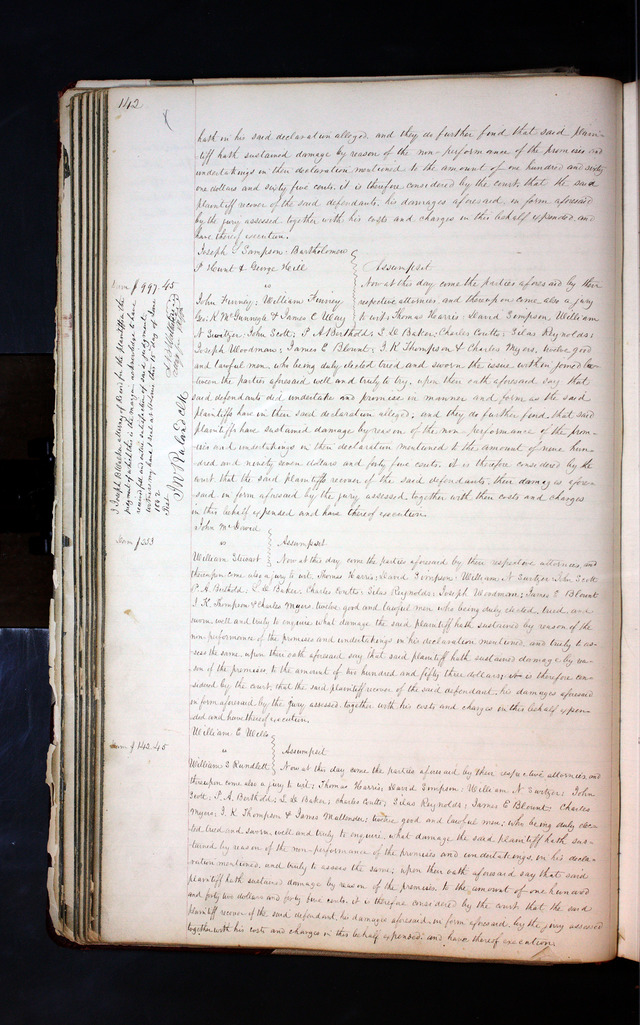 142
hath in his said declaration alleged, and they do further find that said plain-
tiff hath sustained damage by reason of the non-performance of the promises and
undertakings in then declaration mentioned to the amount of one hundred and sixty
one dollars and sixty five cents, it is therefore considered by the court that the said
plaintiff recover of the said defendants, his damages aforesaid, in form aforesaid
by the jury assessed together with his costs and charges in this behalf expended, and
have thereof execution.
Joseph Sampson, Bartholomew
P Hount & George Hill
vs
Assumpsit
Now at this day come the parties aforesaid by their
John Finney; William Finney
respective attornies, and thereupon come also a jury
Geo: K McGunnegle & James C Way
to wit, Thomas Harris; David Sompson; William
N Switzer; John Scott; P. A Berthold; S De Baker; Charles Coutts; Silas Reynolds;
Joseph Woodman; James E Blount; I. K Thompson & Charles Myers, twelve good
and lawful men, who being duly elected tried and sworn the issue within joined be-
tween the parties aforesaid well and truly to try, upon their oath aforesaid say that
said defendants did undertake and promise in manner and form as the said
plaintiffs have in their said declaration alleged; and they do further find, that said
plaintiffs have sustained damage by reason of the non-performance of the prom-
ises and undertakings in then declaration mentioned to the amount of nine hun-
dred and ninety seven dollars and forty five cents. it is therefore considered by the
court that the said plaintiffs recover of the said defendants, their damages afore-
said in form aforesaid by the jury assessed, together with their costs and charges
in this behalf expended and have thereof execution.
$ 997.45
I Joseph B attorney of Record for the plaintiff in the
judgment of which this is the margin acknowledge to have
received full and entire satisfaction of said judgment
witness my hand and seal at St Louis this day of June
1842
Test
John McDavid
vs
Assumpsit
$ 253
William Stewart
Now at this day come the parties aforesaid by their respective attornies, and
thereupon come also a jury to wit, Thomas Harris; David Sompson; William N Switzer; John Scott
P. A. Berthold; S De Baker; Charles Coutts; Silas Reynolds; Joseph Woodman; James E Blount
I K. Thompson & Charles Myers, twelve good and lawful men who being duly elected, tried, and
sworn, well and truly to enquire what damage the said plaintiff hath sustained by reason of the
non-performance of the promises and undertakings in his declaration mentioned, and truly to as-
sess the same, upon their oath aforesaid say that said plaintiff hath sustained damage by rea-
son of the promises to the amount of two hundred and fifty three dollars; it is therefore con-
sidered by the court that the said plaintiff recover of the said defendant, his damages aforesaid
in form aforesaid by the jury assessed, together with his costs and charges in this behalf expen-
ded and have thereof execution.
William C Wells
vs
Assumpsit
$ 142.45
William S Rundlett
Now at this day come the parties aforesaid by their respective attornies, and
thereupon come also a jury to wit; Thomas Harris; David Sompson; William N Switzer; John
Scott; P. A. Berthold; S. De Baker; Charles Coutts; Silas Reynolds; James E Blount; Charles
Myers; I. K Thompson & James Mallender; twelve good and lawful men, who being duly elec-
ted tried and sworn well and truly to enquire, what damage the said plaintiff hath sus-
tained by reason of the non-performance of the promises and undertakings, in his decla-
ration mentioned, and truly to assess the same, upon their oath aforesaid say that said
plaintiff hath sustained damage by reason of the promises, to the amount of one hundred
and forty two dollars and forty five cents. it is therefore considered by the court that the said
plaintiff recover of the said defendant, his damages aforesaid, in form aforesaid, by the jury assessed
together with his costs and charges in this behalf expended; and have thereof execution